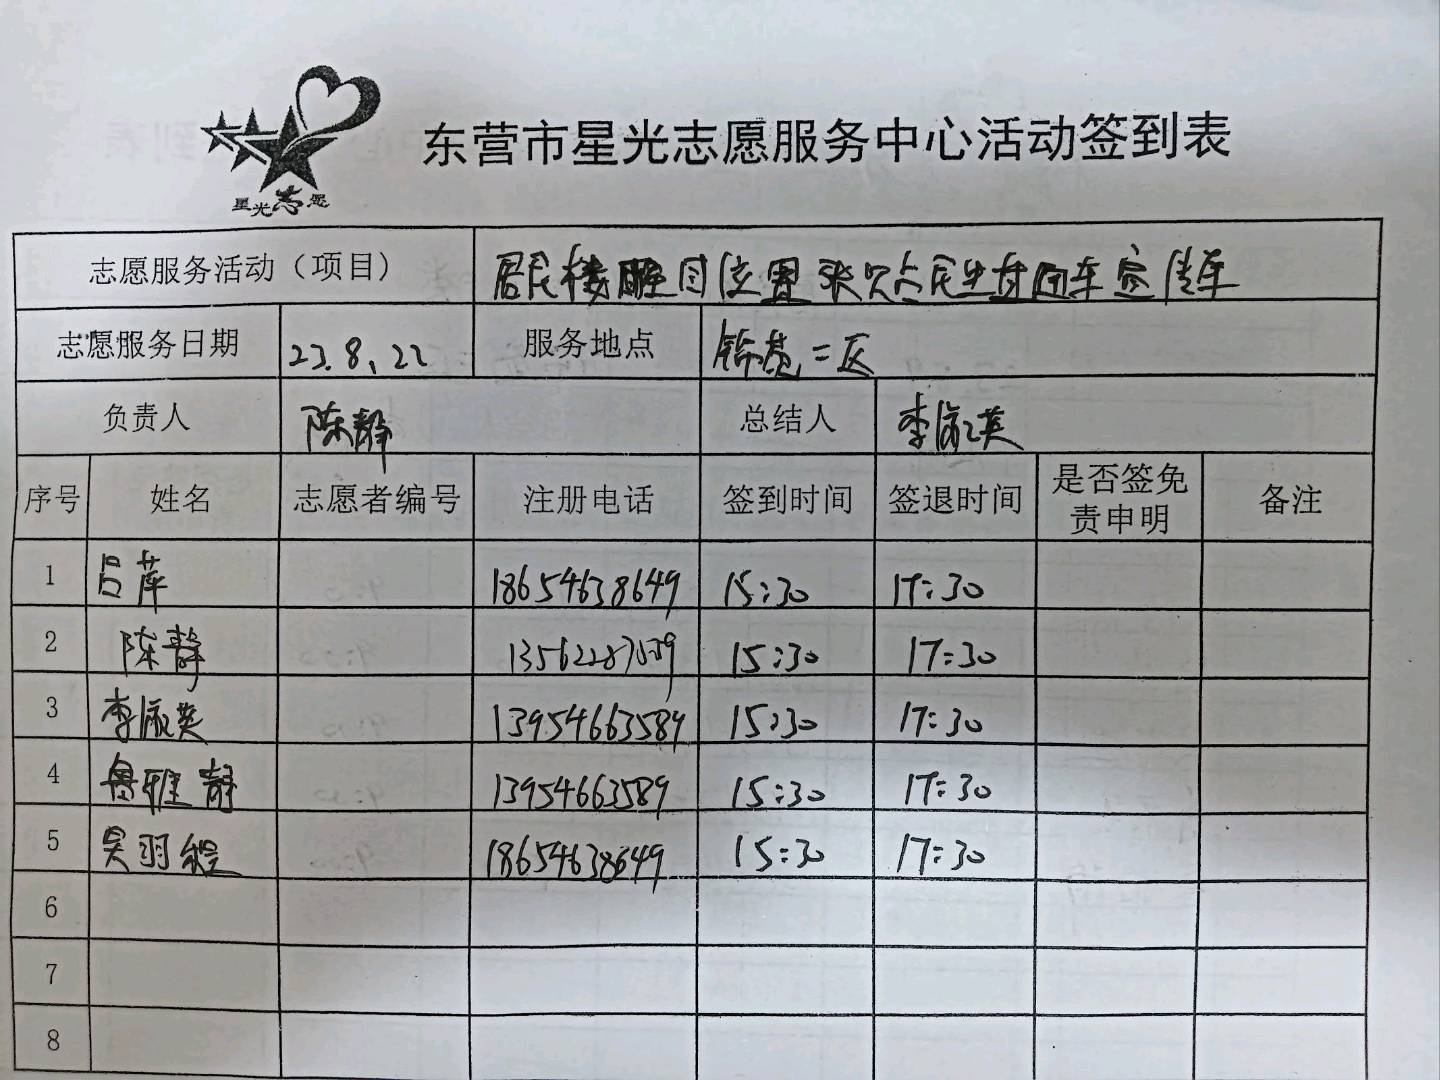 星光志愿
东营市星光志愿服务中心活动签到表
志愿服务活动（项目） 居民楼醒目位置张贴
志愿服务日期 23.8.22 服务地点 锦苑二区
负责人 陈静 总结人 李淑英
序号 姓名 志愿者编号 注册电话 签到时间 签退时间 是否签免责申明 备注
1 吕萍 18654638649 15:30 17:30
2 陈静 15:30 17:30
3 李淑英 13954663589 15:30 17:30
4 鲁雅静 13954663589 15:30 17:30
5 吴羽程 18654638649 15:30 17:30
6
7
8